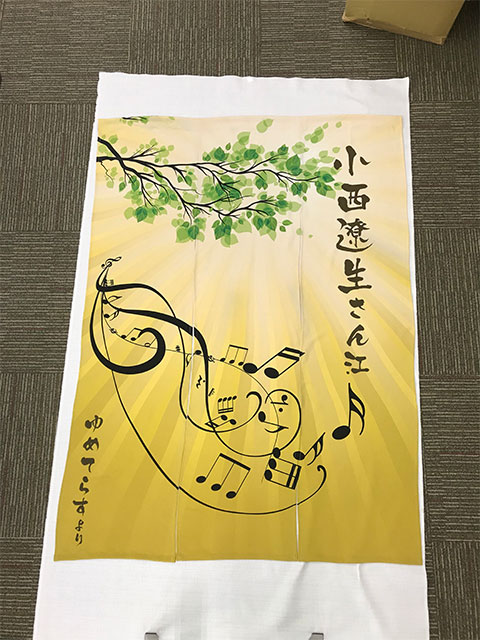 小西遼生さん江
ゆめてらすより